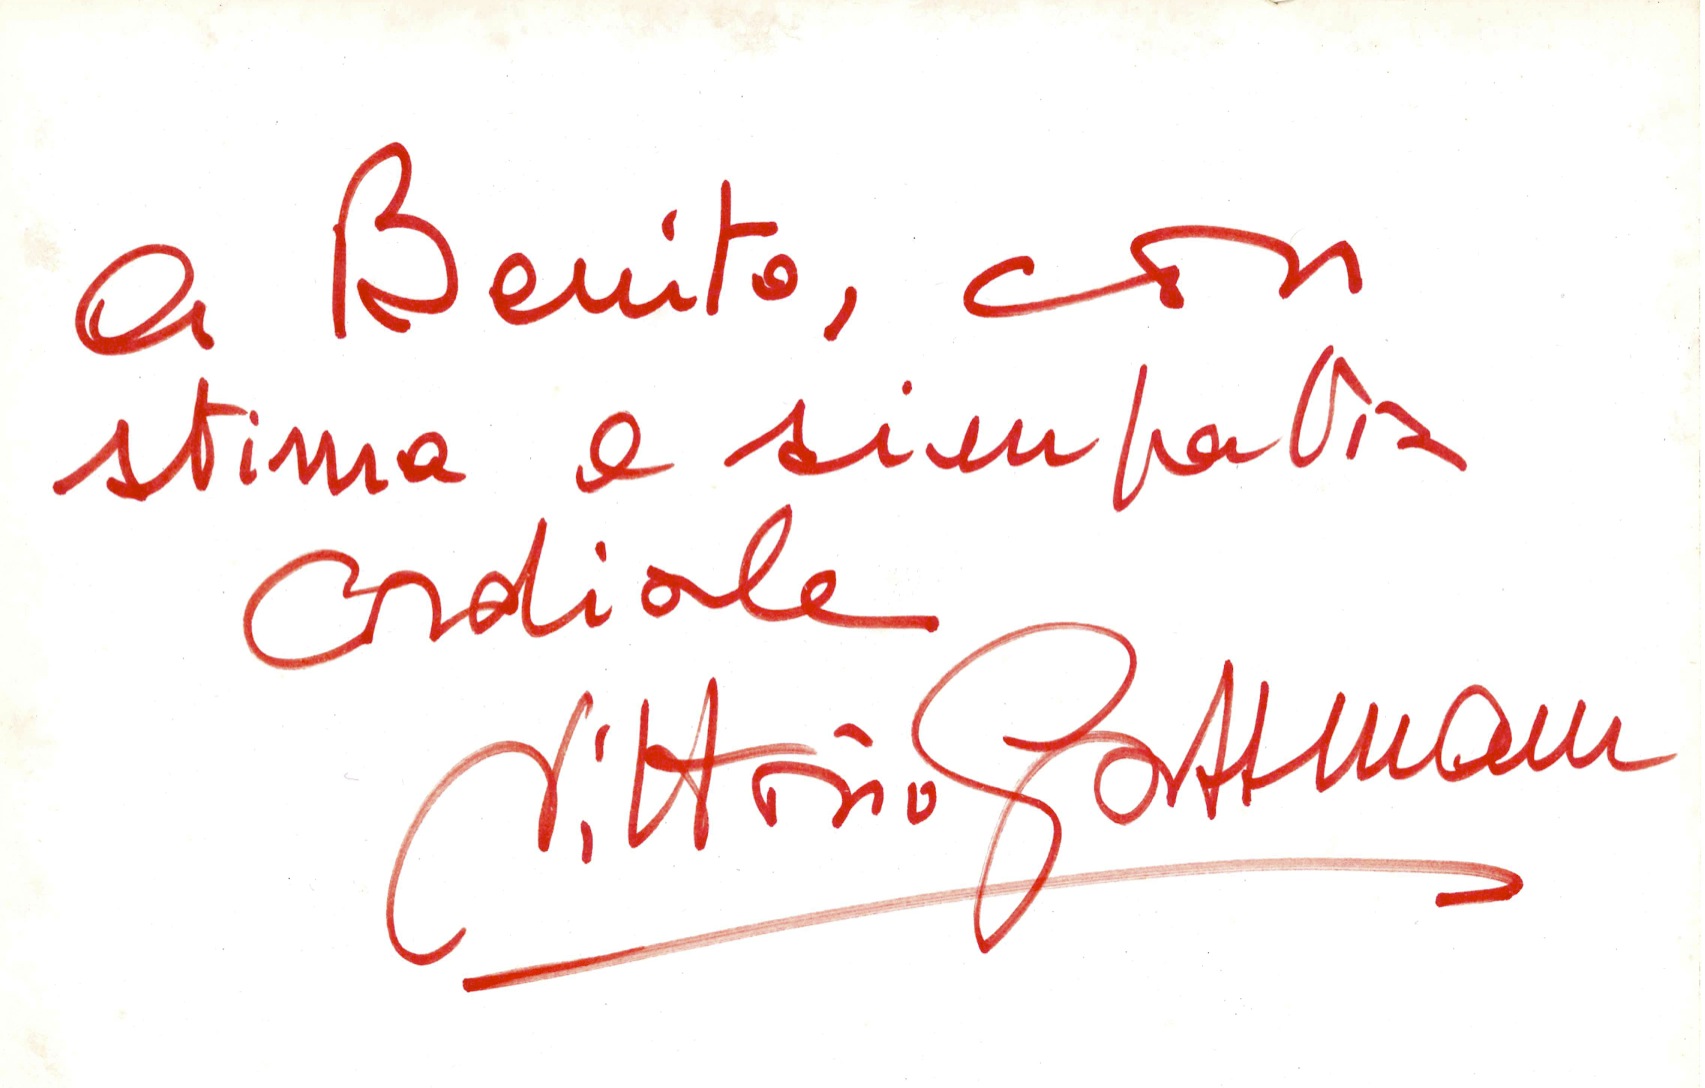 a Benito, con
stima e simpatia
cordiale
Vittorio Gassmann